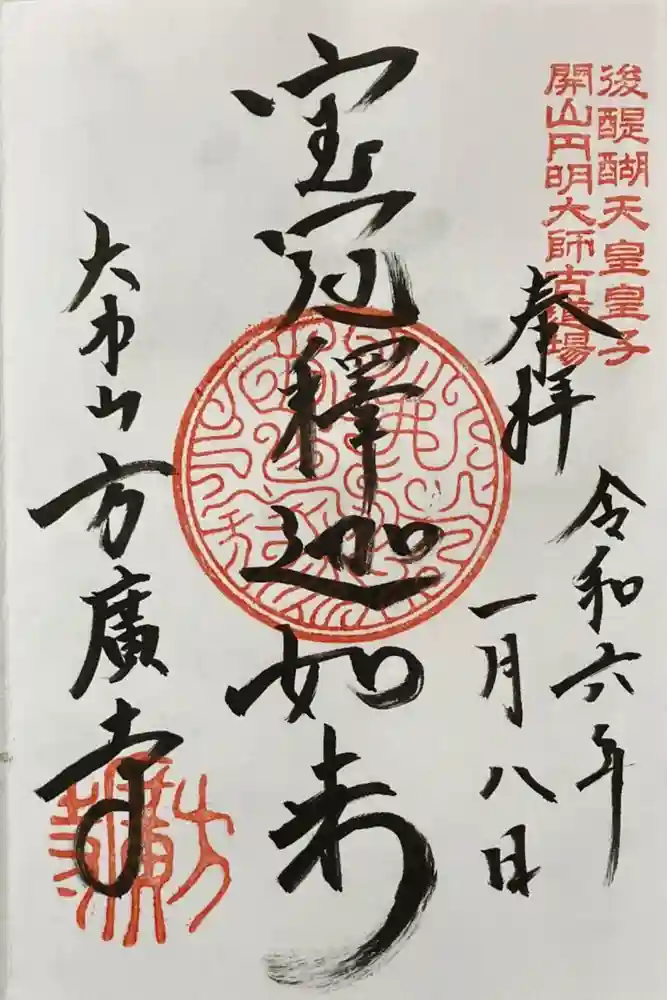 後醍醐天皇皇子
開山円明大師古道場
奉拝
令和六年
一月八日
宝冠釋迦如来
大本山方廣寺
方廣寺